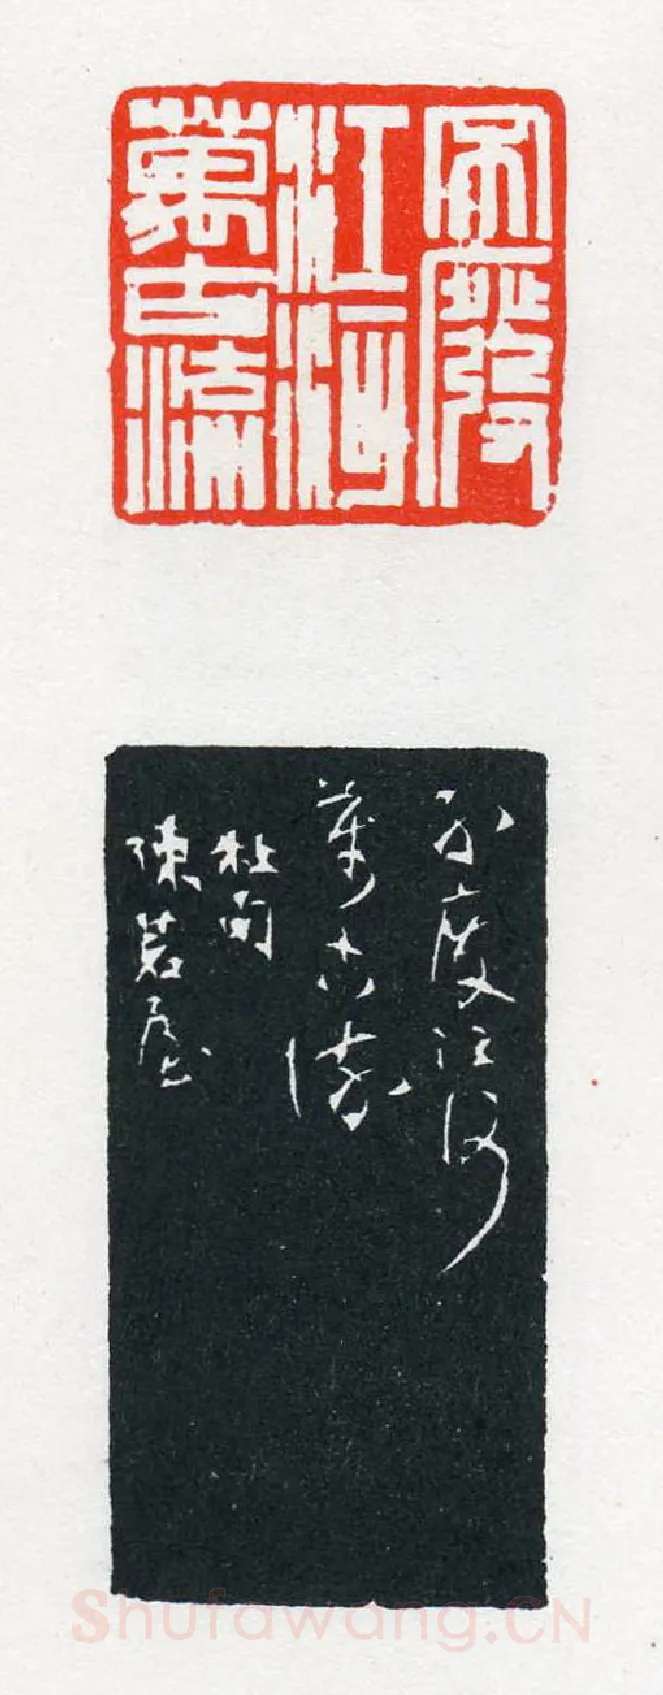 不廢
江河
萬古流
不廢江河
萬古流
杜句
陳茗屋
Shufawang.CN